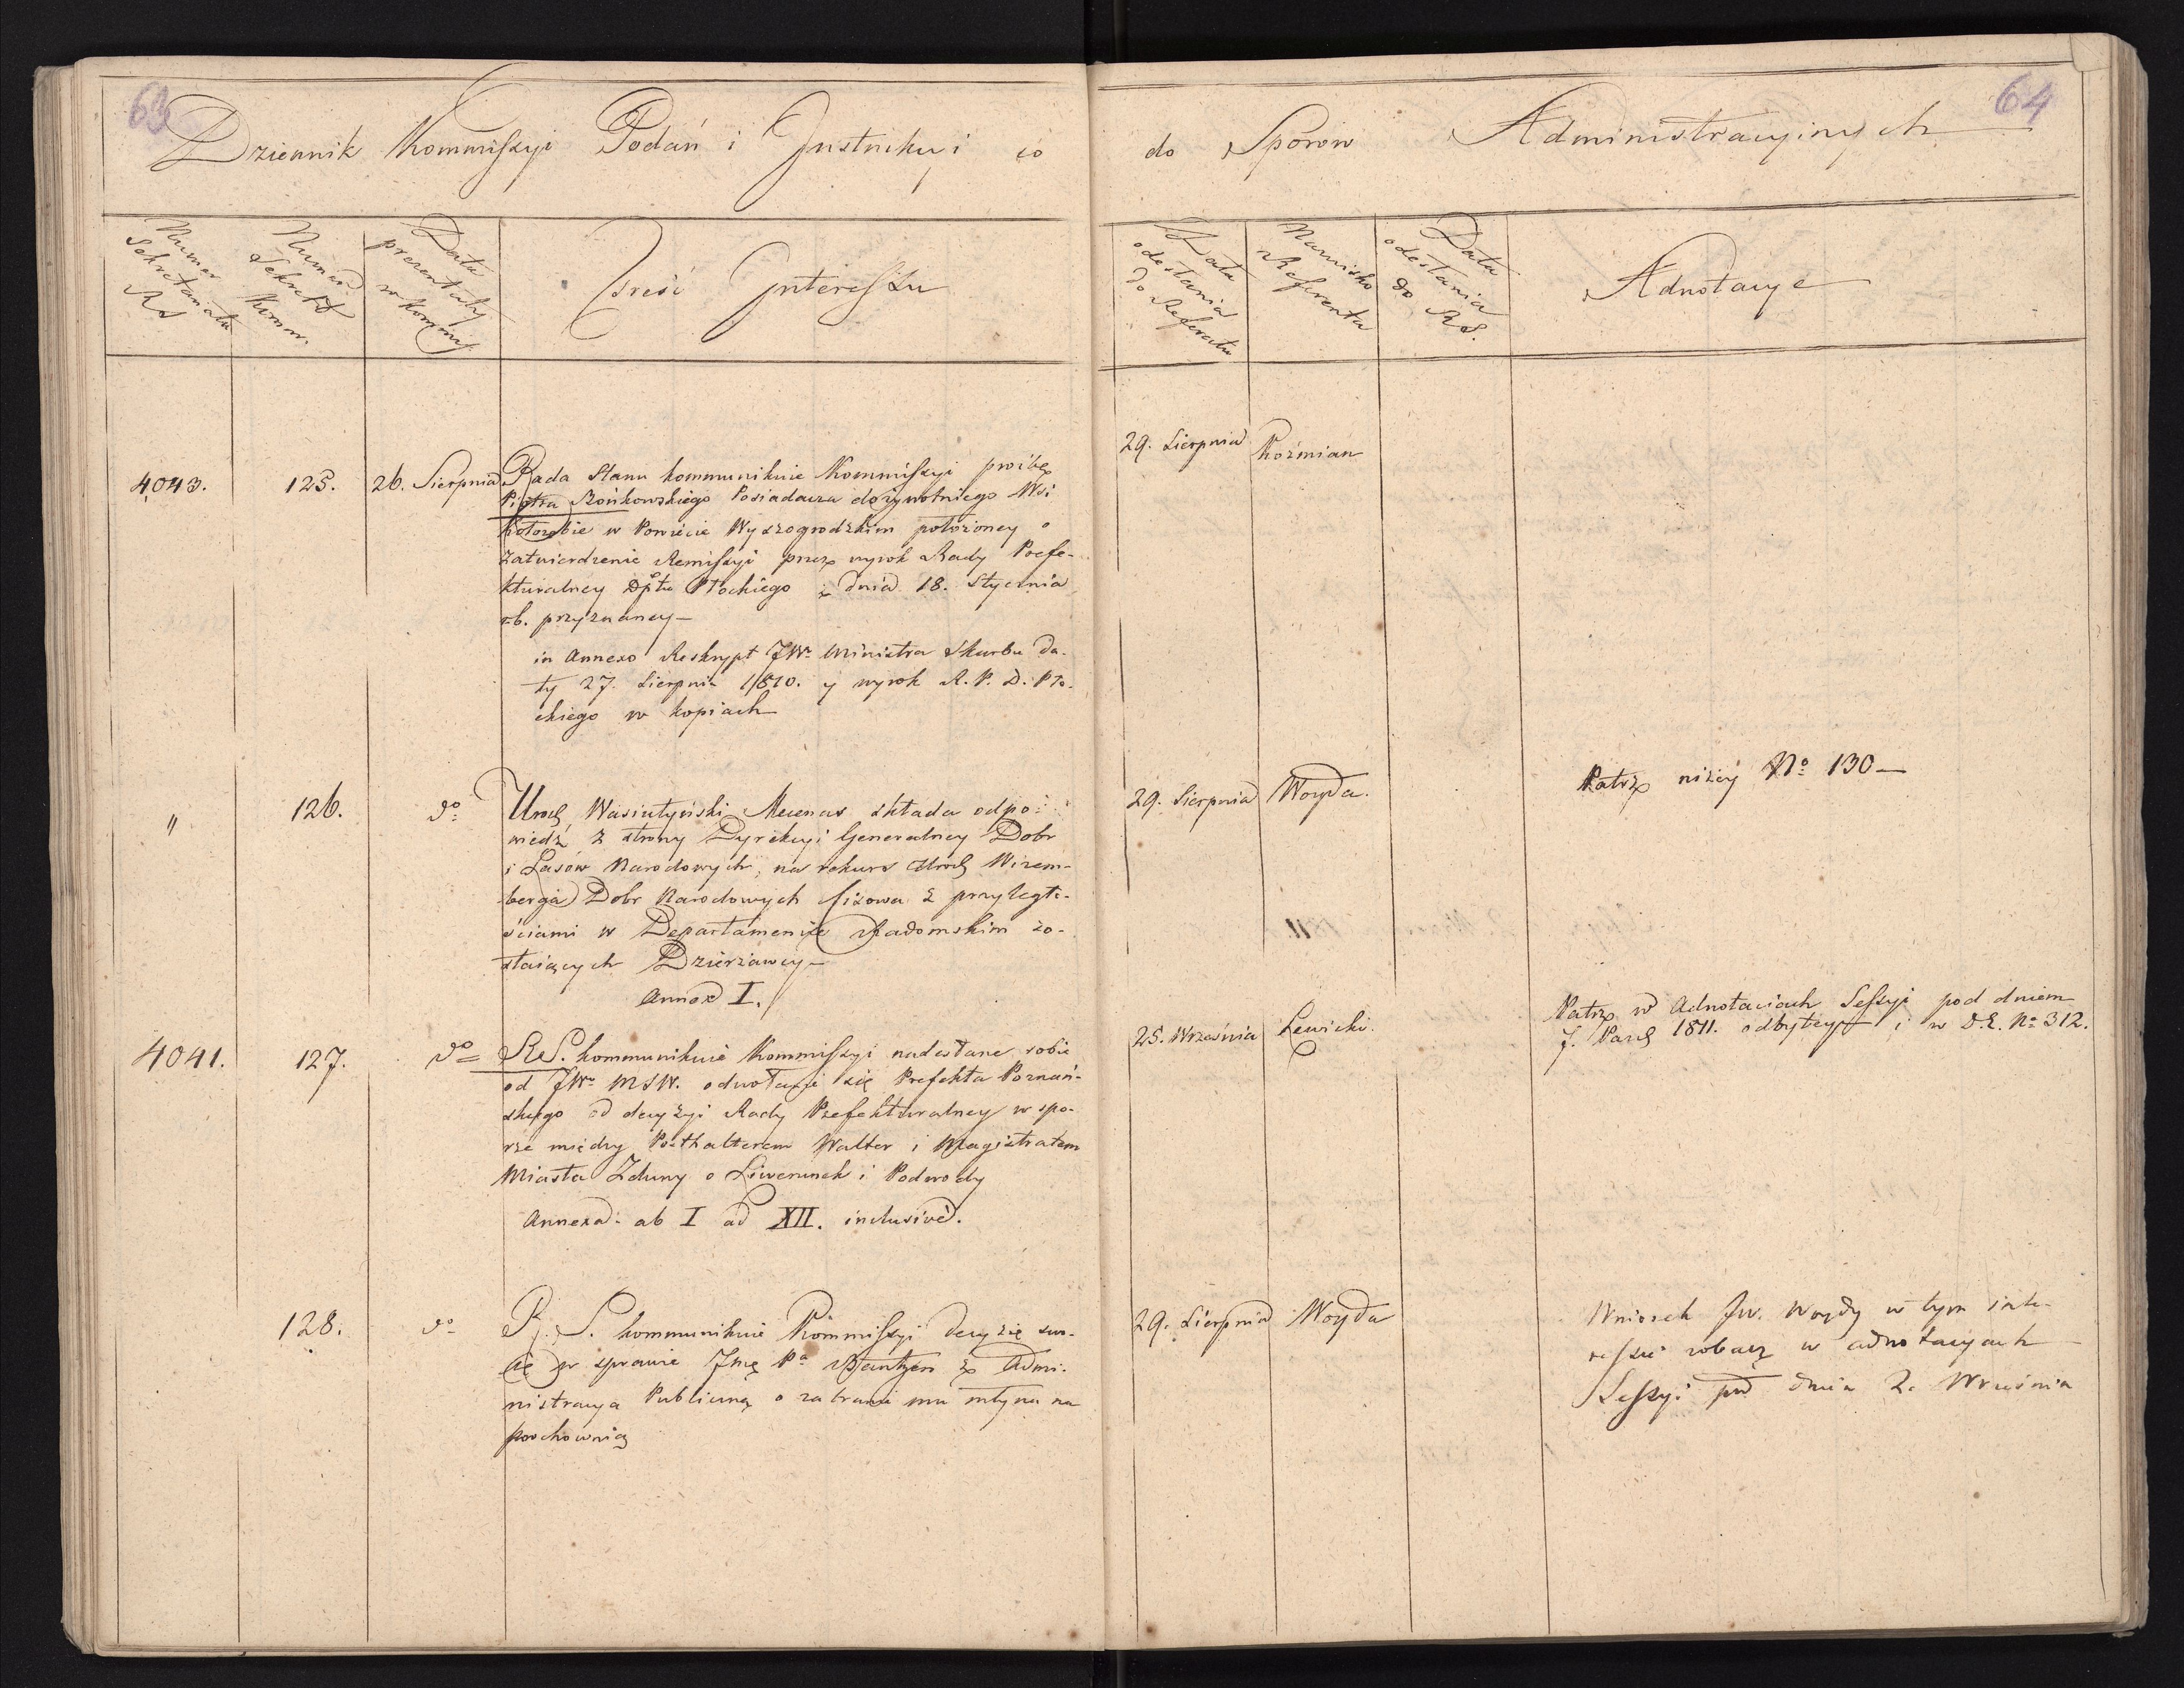 63
64
Dziennik Kommissyi Podań i Instrukcyi co do Sporów Administracyinych
Numer Sekretariatu RS
Numer Sekret. Komm.
Data prezentaty w Kommis.
Treść Interessu
Data odesłania do Referatu
Nazwisko Referenta
Data odesłania do RS.
Adnotacye
4043.
125.
26. Sierpnia
Rada Stanu kommunikuie Kommissyi proźbę
Piotra Bońkowskiego Posiadacza dożywotniego Wsi
w Powiecie Wyszogrodzkim położoney o
zatwierdzenie Remissyi przez wyrok Rady Prefe-
kturalney Dptu Płockiego z dnia 18. Stycznia
r.b. przyznaney—
in Annexo Reskrypt JWo Ministra Skarbu da-
ty 27. Sierpnia 1810. y wyrok R. P. D. Pło-
ckiego w kopiach
29. Sierpnia
Koźmian
"
126.
do
Urodz. Wasiutyński Mecenas składa odpo-
wiedź z strony Dyrekcyi Generalney Dobr
i Lasów Narodowych, na rekurs Urodz. Wirem-
berga Dobr Narodowych z przyległo-
ściami w Departamencie Radomskim zo-
staiących Dzierżawcy—
Annexa I.
29. Sierpnia
Woyda.
Patrz niżey No 130—
4041.
127.
do
RS. kommunikuie Kommissyi nadesłane sobie
od JWo MSW. odwołanie się Prefekta Poznań-
skiego od decyzyi Rady Prefekturalney w spo-
rze między Posthalterem Walter i Magistratem
Miasta Zduny o Liwerunek i Podwody
Annexa: ab I ad XII. inclusive.
25. Września
Lewicki.
Patrz w Adnotaciach Sessyi pod dniem
7. Paźdz. 1811. odbytey i w D.E. No 312.
128.
do
R. S. kommunikuie Kommissyi decyzię swo-
ię w sprawie Jmę Pa Bantzen z Admi-
nistracya Publiczną o zabranie mu młyna na
prochownią
29. Sierpnia
Woyda
Wniosek JW. Woydy w tym inte-
ressie zobacz w adnotacyach
Sessyi pod dnia 2. Września